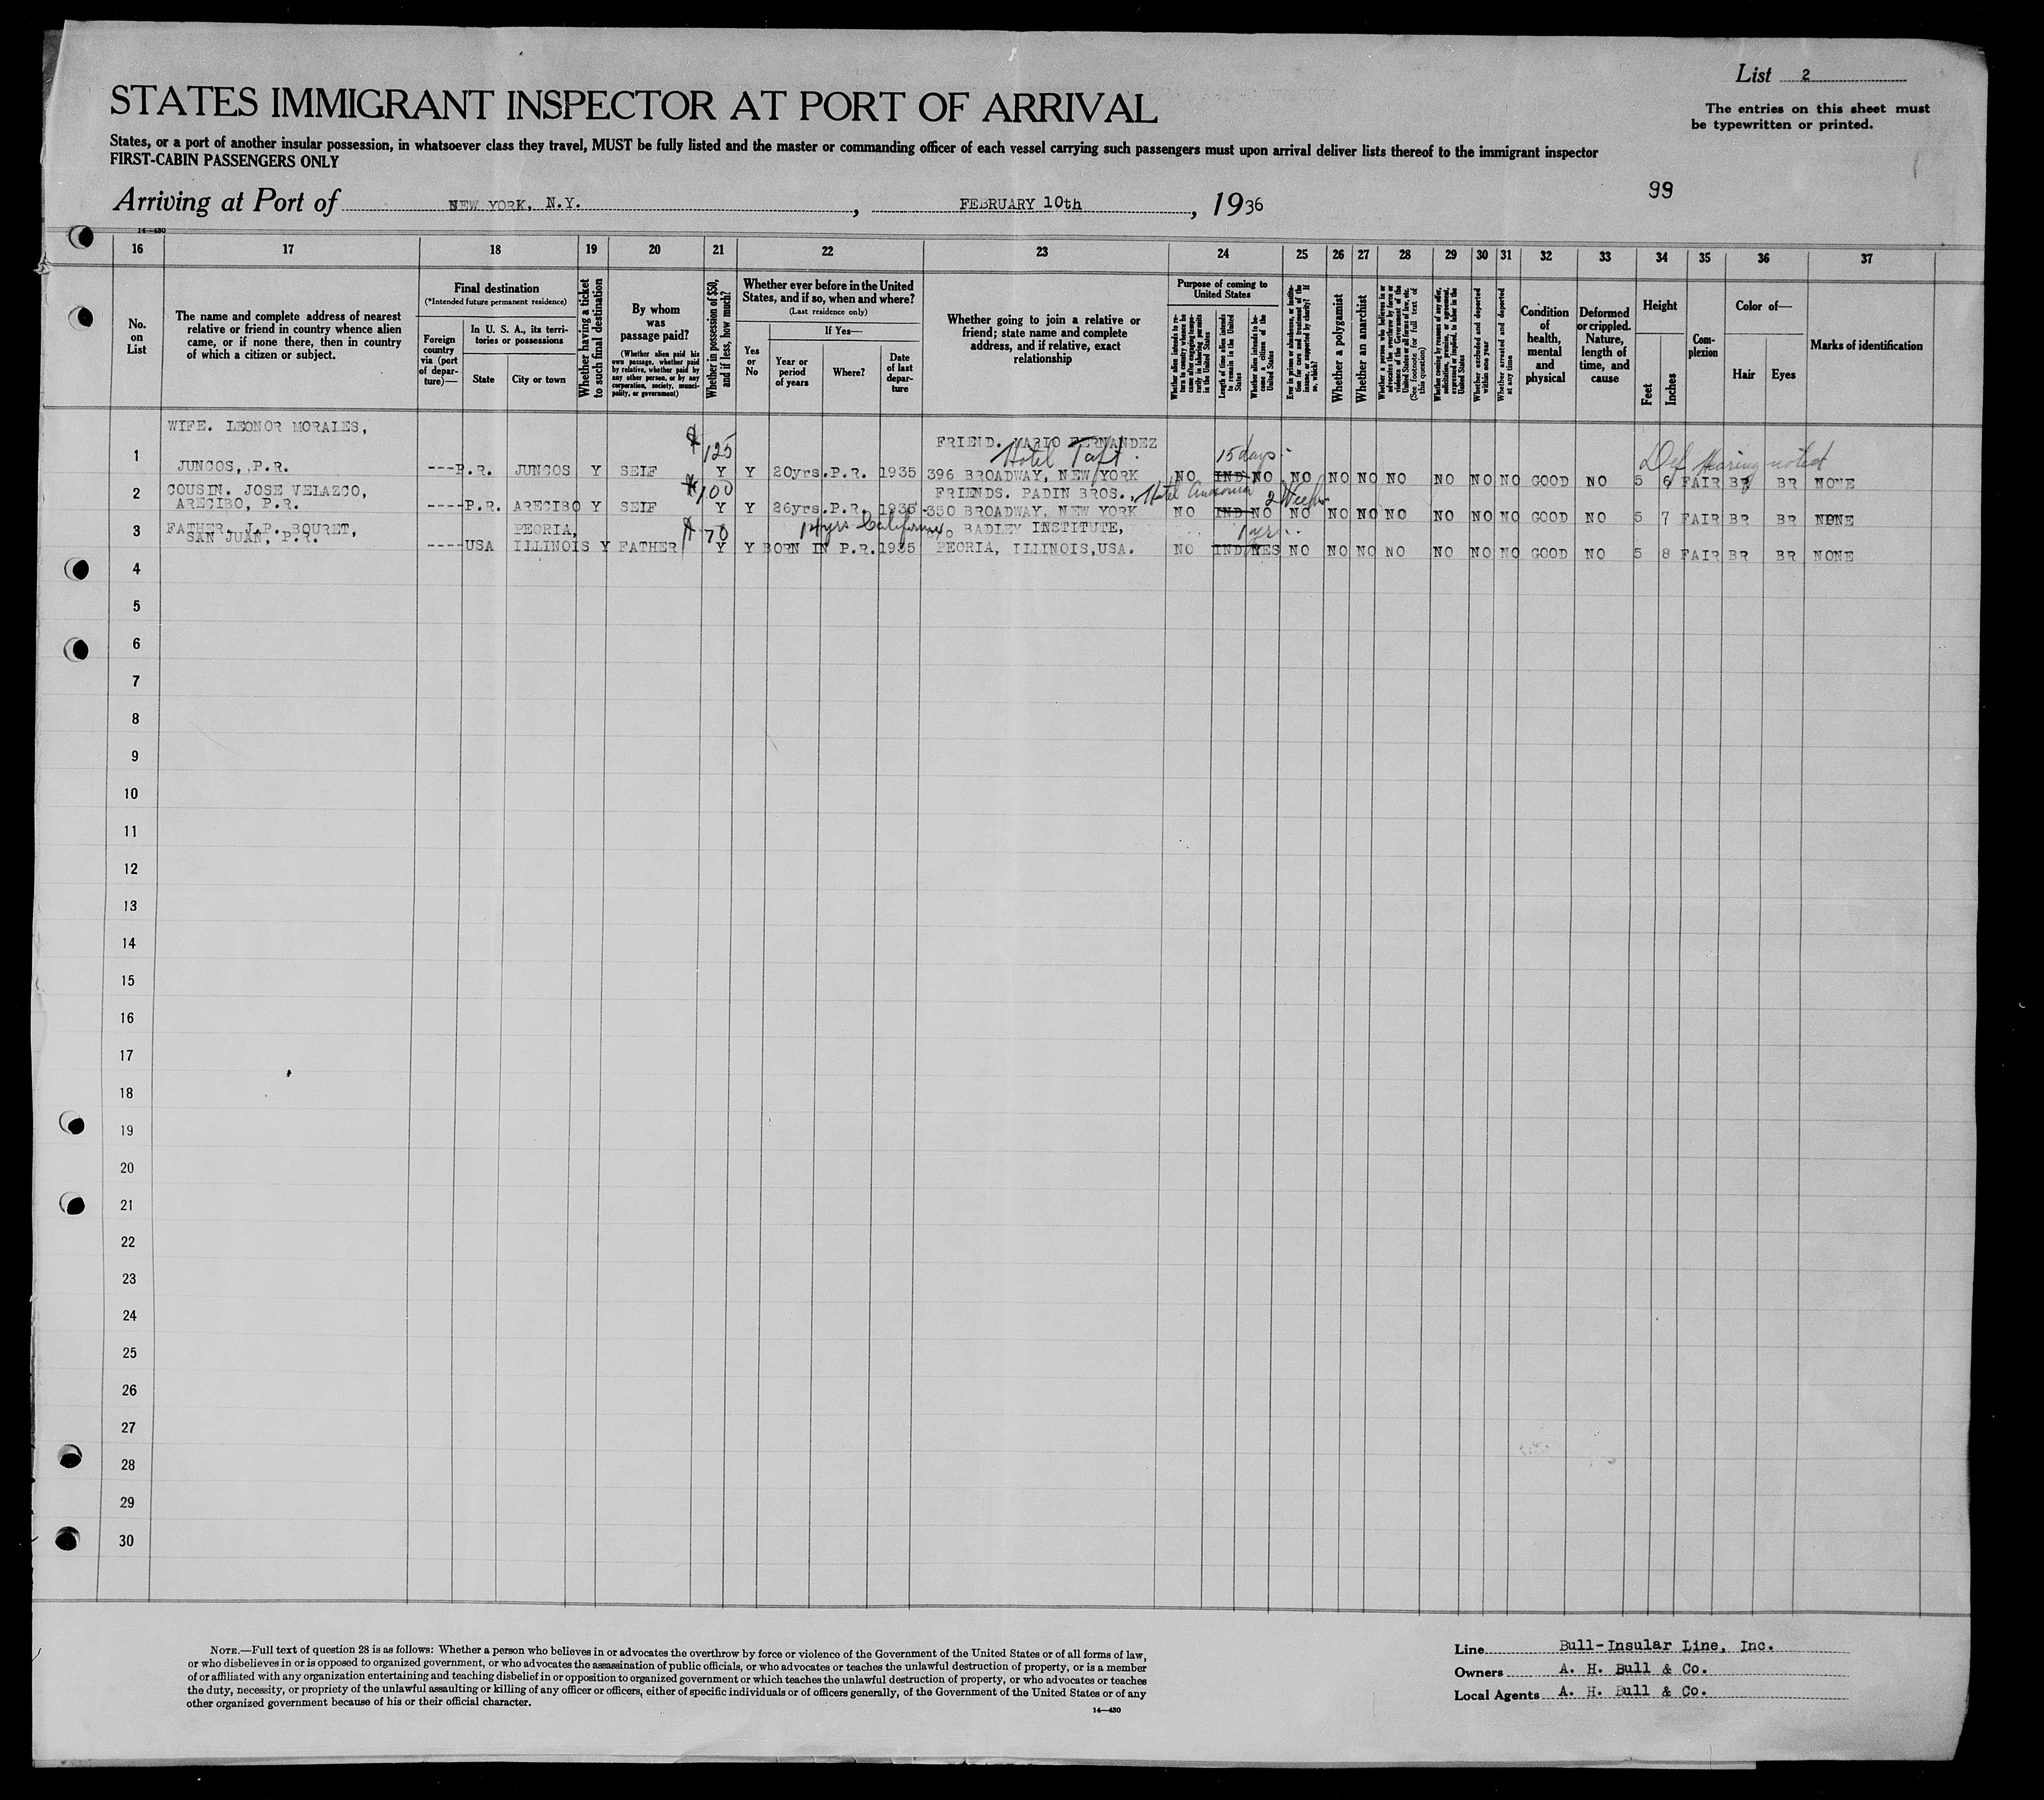 List 2
STATES IMMIGRANT INSPECTOR AT PORT OF ARRIVAL
The entries on this sheet must
be typewritten or printed.
States, or a port of another insular possession, in whatsoever class they travel, MUST be fully listed and the master or commanding officer of each vessel carrying such passengers must upon arrival deliver lists thereof to the immigrant inspector
FIRST-CABIN PASSENGERS ONLY
99
Arriving at Port of NEW YORK, N.Y. , FEBRUARY 10th , 1936
14—430
16 17 18 19 20 21 22 23 24 25 26 27 28 29 30 31 32 33 34 35 36 37
No.
on
List
The name and complete address of nearest
relative or friend in country whence alien
came, or if none there, then in country
of which a citizen or subject.
Final destination
(*Intended future permanent residence)
Foreign
country
via (port
of depar-
ture)—
In U. S. A., its terri-
tories or possessions
State
City or town
Whether having a ticket
to such final destination
By whom
was
passage paid?
(Whether alien paid his
own passage, whether paid
by relative, whether paid
by any other person, or by any
corporation, society, munici-
pality, or government)
Whether in possession of $50,
and if less, how much?
Whether ever before in the United
States, and if so, when and where?
(Last residence only)
Yes
or
No
If Yes—
Year or
period
of years
Where?
Date
of last
depar-
ture
Whether going to join a relative or
friend; state name and complete
address, and if relative, exact
relationship
Purpose of coming to
United States
Whether alien intends to re-
turn to country whence he
came after engaging tempo-
rarily in laboring pursuits
in the United States
Length of time alien intends
to remain in the United
States
Whether alien intends to be-
come a citizen of the
United States
Ever in prison or almshouse, or institu-
tion for care and treatment of the
insane, or supported by charity? If
so, which?
Whether a polygamist
Whether an anarchist
Whether a person who believes in or
advocates the overthrow by force or
violence of the Government of the
United States or all forms of law, etc.
(See footnote for full text of
this question)
Whether coming by reason of any offer,
solicitation, promise, or agreement,
expressed or implied, to labor in the
United States
Whether excluded and deported
within one year
Whether arrested and deported
at any time
Condition
of
health,
mental
and
physical
Deformed
or crippled.
Nature,
length of
time, and
cause
Height
Feet
Inches
Com-
plexion
Color of—
Hair
Eyes
Marks of identification
WIFE. LEONOR MORALES,
$125 FRIEND. MARIO FERNANDEZ
Hotel Taft. 15 days Def Hearing noted
1 JUNCOS, P.R. ---P.R. JUNCOS Y SELF Y Y 20yrs. P.R. 1935 396 BROADWAY, NEW YORK NO IND NO NO NO NO NO NO NO NO GOOD NO 5 6 FAIR BR BR NONE
2 COUSIN. JOSE VELAZCO, $100 FRIENDS. PADIN BROS., Hotel Ansonia 2 Weeks
ARECIBO, P.R. ----P.R. ARECIBO Y SELF Y Y 26yrs. P.R. 1935 350 BROADWAY, NEW YORK NO IND NO NO NO NO NO NO NO NO GOOD NO 5 7 FAIR BR BR NONE
3 FATHER. J.P. BOURET, PEORIA, $70 14 yrs California c/o BADLEY INSTITUTE, 1 yr
SAN JUAN, P.R. ----USA ILLINOIS Y FATHER Y Y BORN IN P.R. 1935 PEORIA, ILLINOIS, USA. NO IND YES NO NO NO NO NO NO NO GOOD NO 5 8 FAIR BR BR NONE
4
5
6
7
8
9
10
11
12
13
14
15
16
17
18
19
20
21
22
23
24
25
26
27
28
29
30
NOTE.—Full text of question 28 is as follows: Whether a person who believes in or advocates the overthrow by force or violence of the Government of the United States or of all forms of law,
or who disbelieves in or is opposed to organized government, or who advocates the assassination of public officials, or who advocates or teaches the unlawful destruction of property, or is a member
of or affiliated with any organization entertaining and teaching disbelief in or opposition to organized government or which teaches the unlawful destruction of property, or who advocates or teaches
the duty, necessity, or propriety of the unlawful assaulting or killing of any officer or officers, either of specific individuals or of officers generally, of the Government of the United States or of any
other organized government because of his or their official character.
14—430
Line Bull-Insular Line, Inc.
Owners A. H. Bull & Co.
Local Agents A. H. Bull & Co.